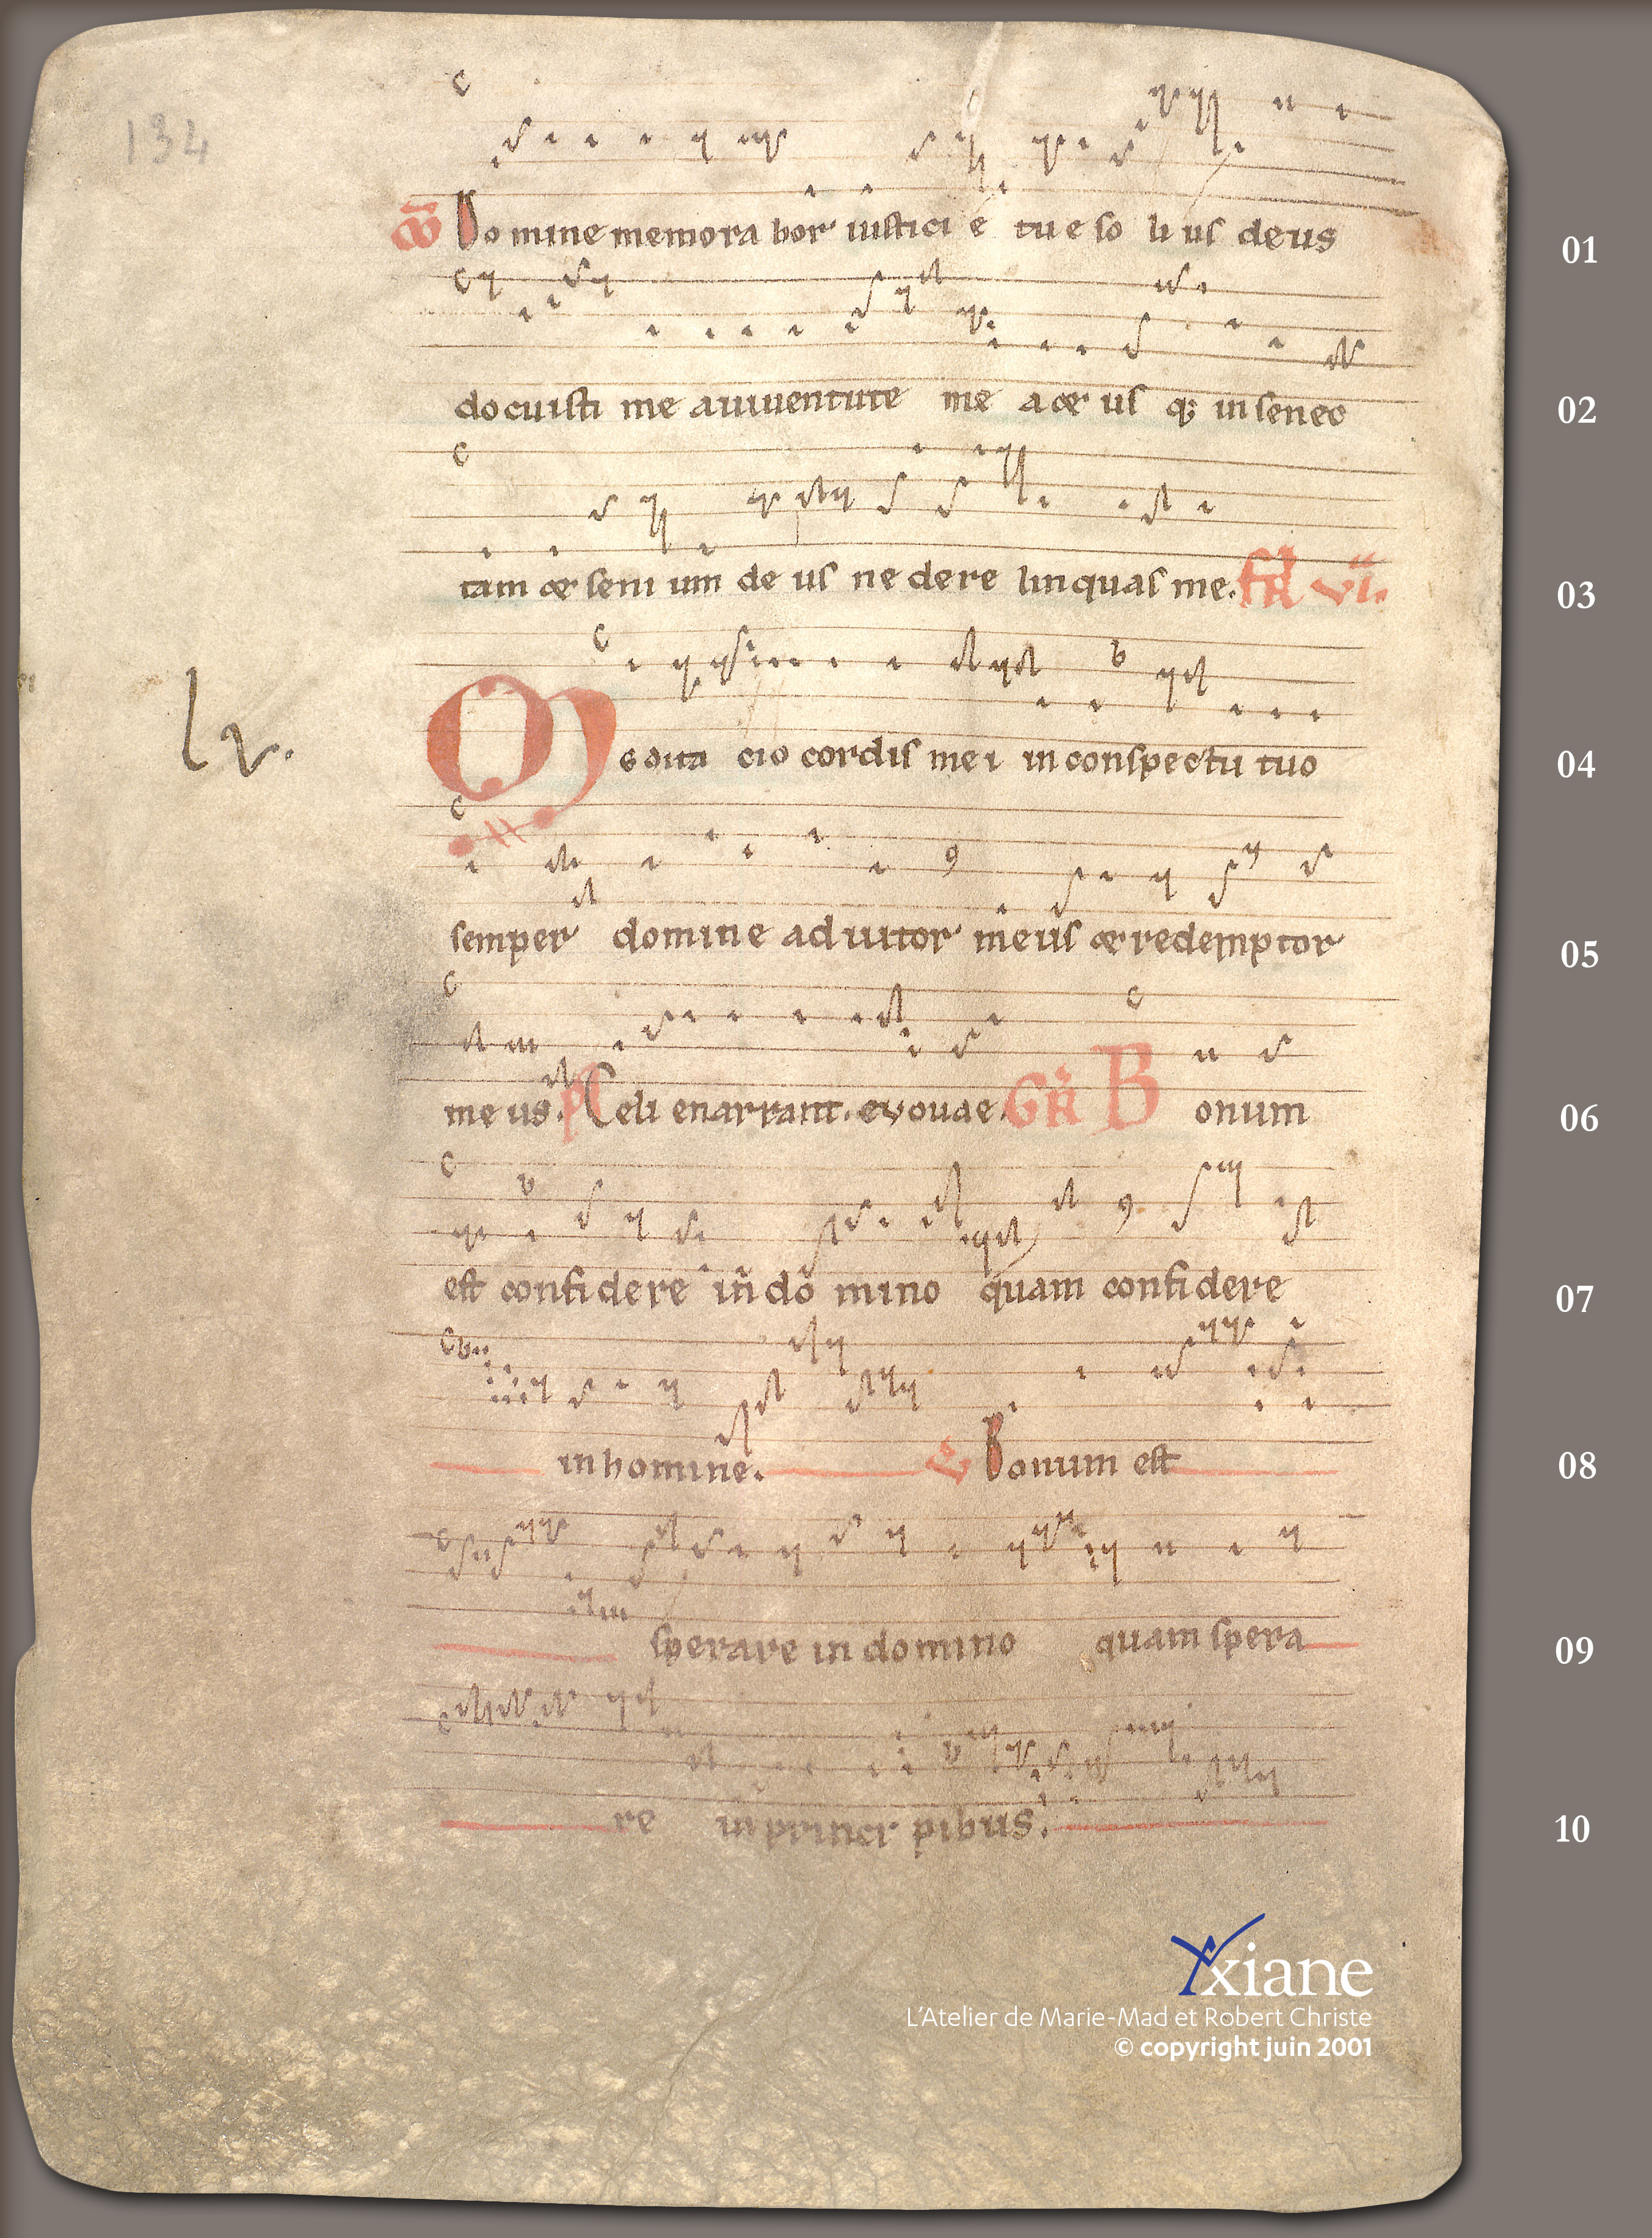 134
CO Domine memorabor iusticie tue solius deus 01
docuisti me a iuventute mea et usq; in senec 02
tam et senium deus ne derelinquas me. FR VI. 03
lv.
Meditacio cordis mei in conspectu tuo 04
semper domine adiutor meus et redemptor 05
meus. ps Celi enarrant. evovae. GR Bonum 06
est confidere in domino quam confidere 07
in homine. V Bonum est 08
sperare in domino quam spera 09
re in principibus. 10
Axiane
L'Atelier de Marie-Mad et Robert Christe
© copyright juin 2001